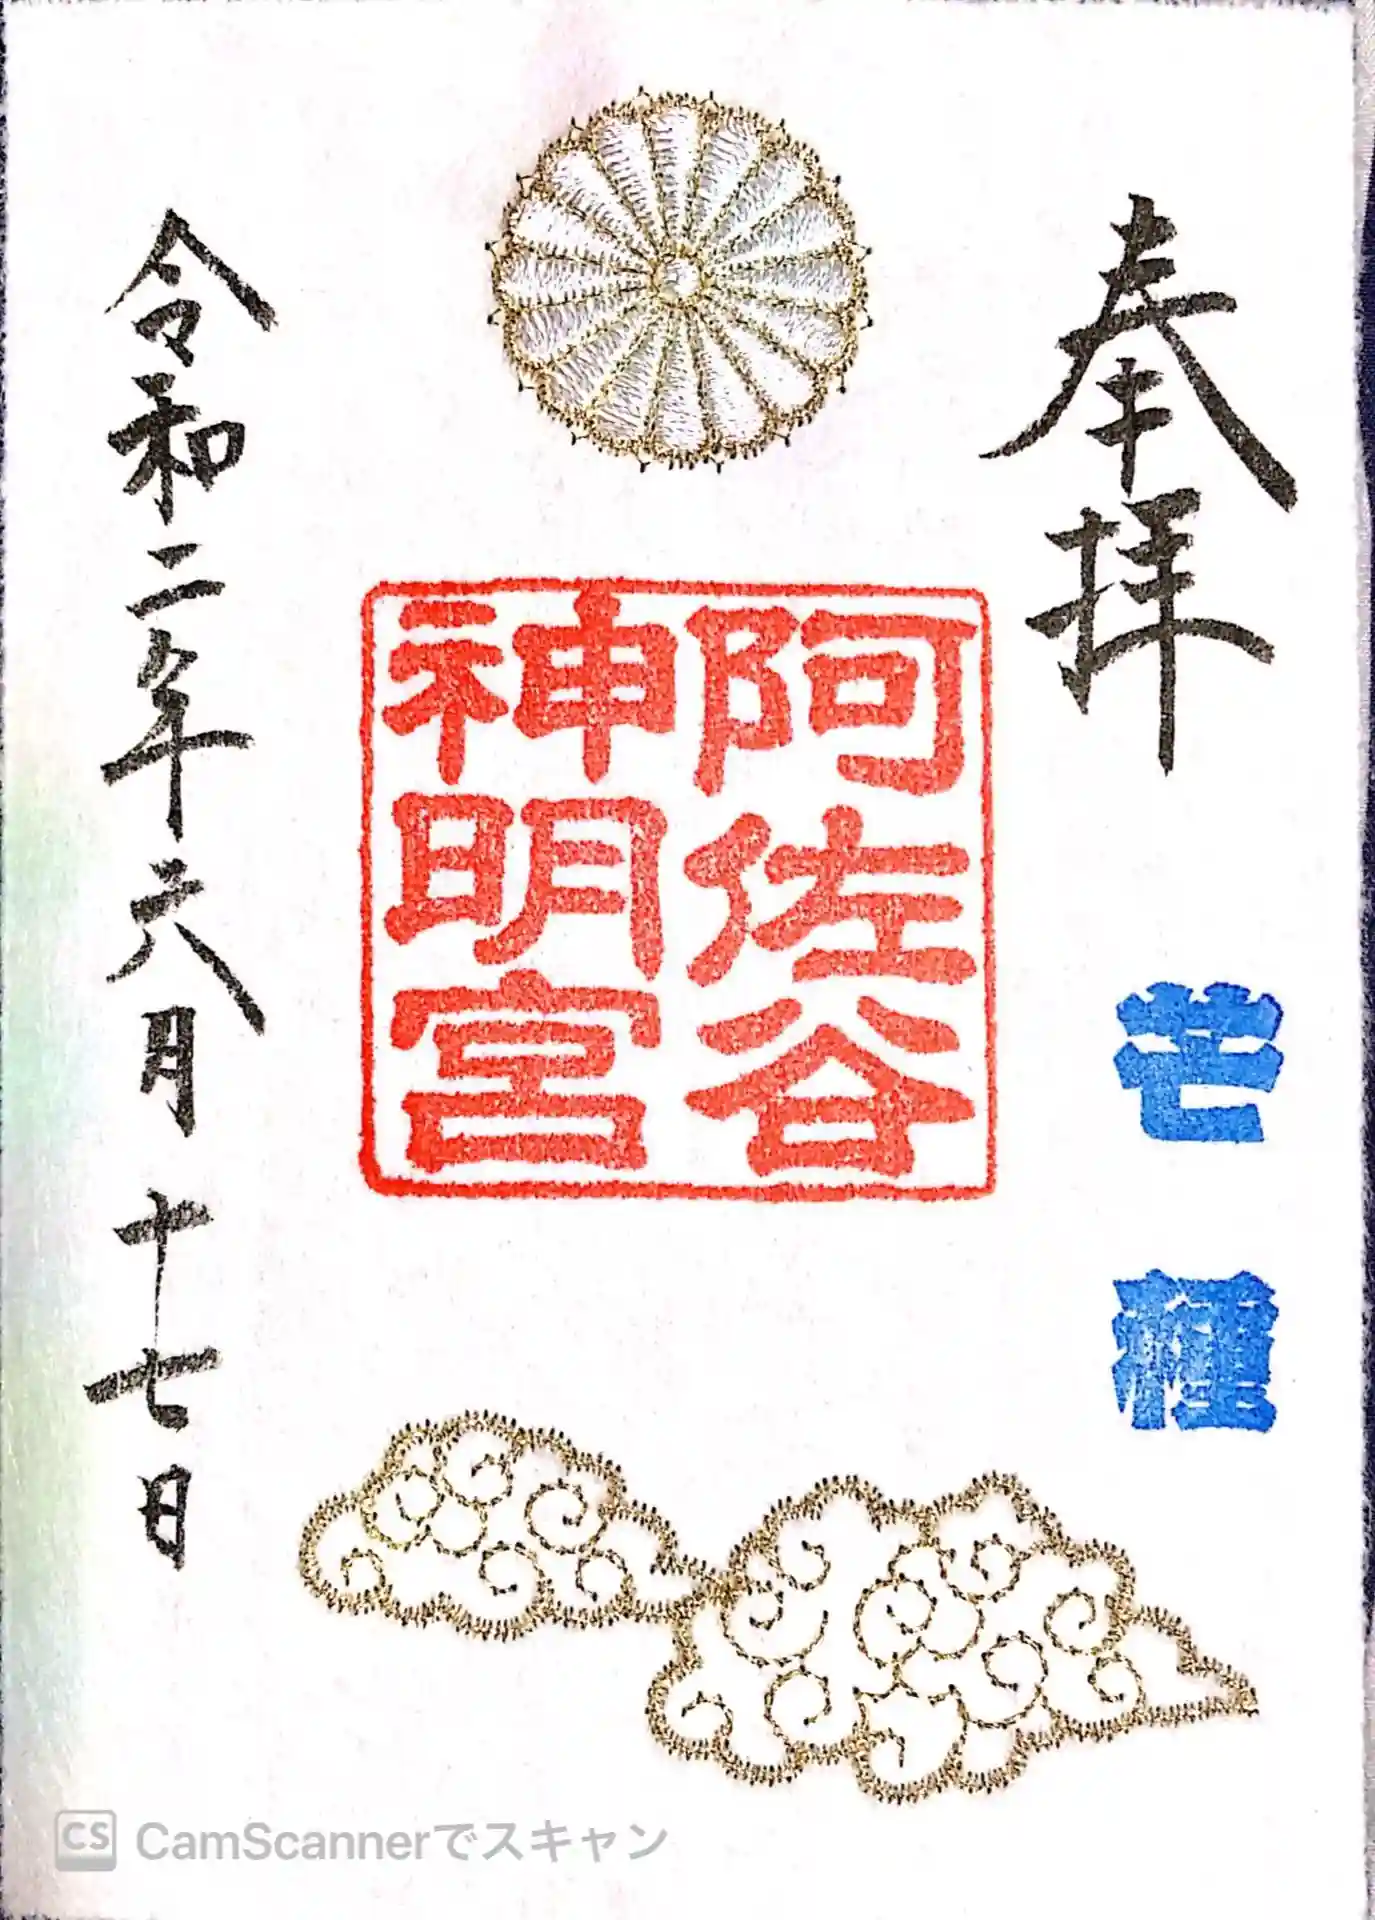 奉拝
芒種
阿佐谷
神明宮
令和二年六月十七日
CS CamScannerでスキャン